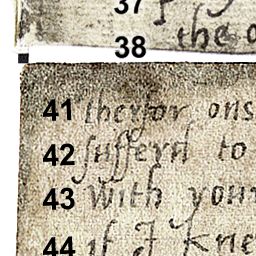 37
38 the
41 therfor ons
42 sufferd to
43 With your
44 if I kne